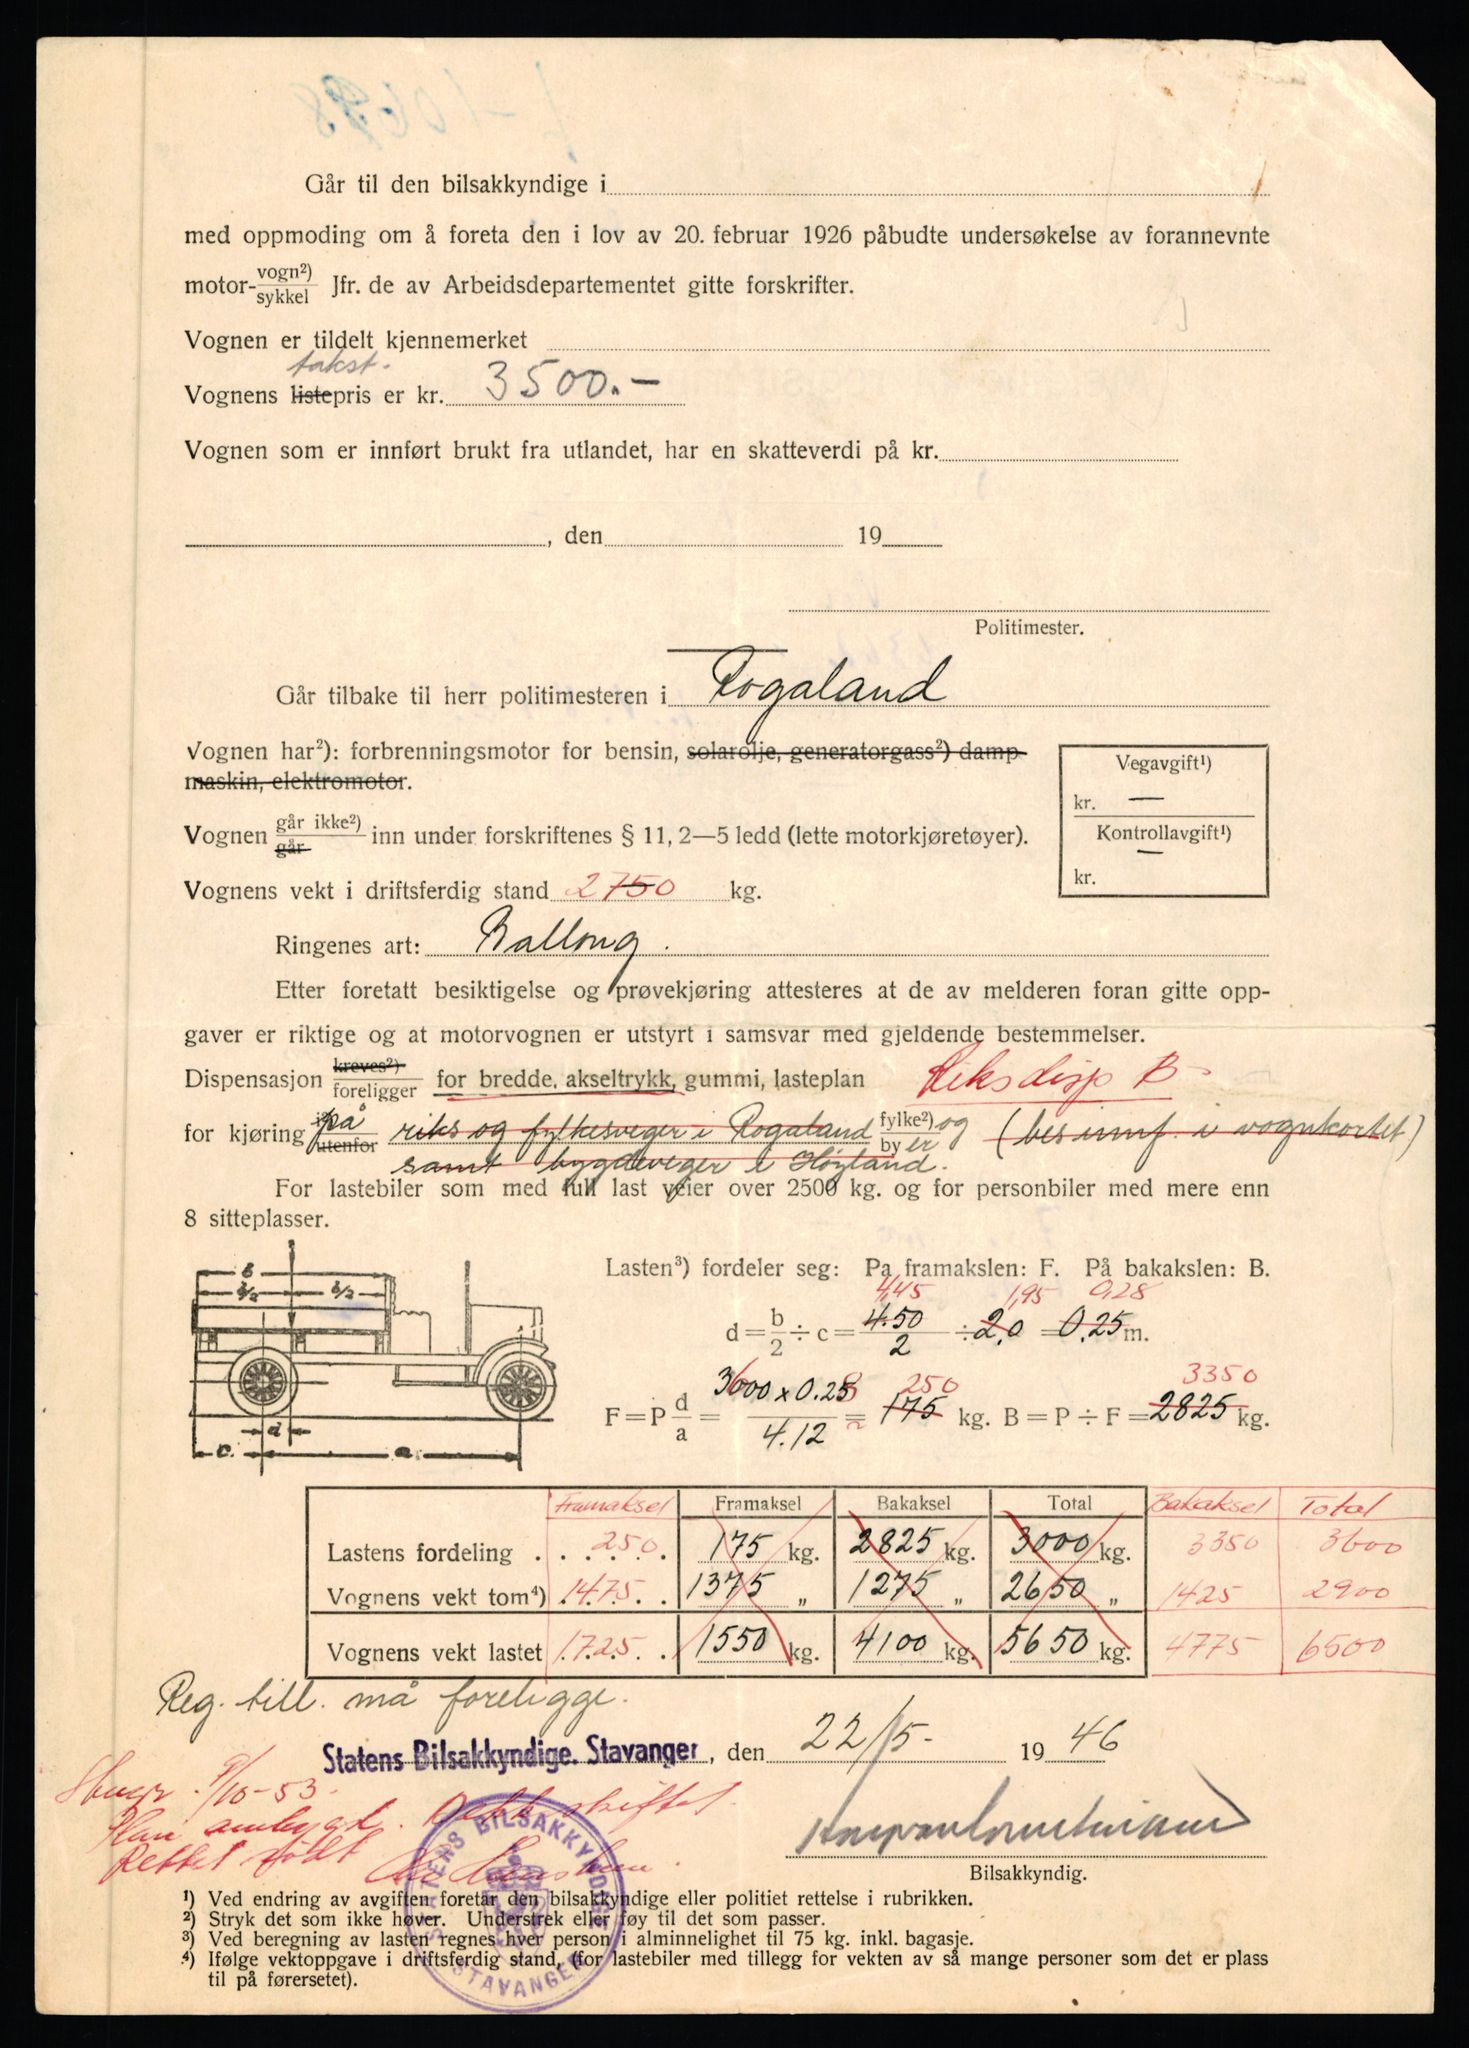 Går til den bilsakkyndige i
med oppmoding om å foreta den i lov av 20. februar 1926 påbudte undersøkelse av forannevnte
motor-vogn²)/sykkel Jfr. de av Arbeidsdepartementet gitte forskrifter.
Vognen er tildelt kjennemerket
takst.
Vognens listepris er kr. 3500.-
Vognen som er innført brukt fra utlandet, har en skatteverdi på kr.
, den 19
Politimester.
Går tilbake til herr politimesteren i Rogaland
Vognen har²): forbrenningsmotor for bensin, solarolje, generatorgass²) damp-
maskin, elektromotor.
Vegavgift¹)
kr. —
Kontrollavgift¹)
—
kr.
Vognen går ikke²)/går inn under forskriftenes § 11, 2—5 ledd (lette motorkjøretøyer).
Vognens vekt i driftsferdig stand 2750 kg.
Ringenes art: Ballong.
Etter foretatt besiktigelse og prøvekjøring attesteres at de av melderen foran gitte opp-
gaver er riktige og at motorvognen er utstyrt i samsvar med gjeldende bestemmelser.
Dispensasjon kreves²)/foreligger for bredde, akseltrykk, gummi, lasteplan Riksdisp B
for kjøring på utenfor riks og fylkesveger i Rogaland fylke²)/by og er (bes innf. i vognkortet)
samt bygdeveger i Høyland.
For lastebiler som med full last veier over 2500 kg. og for personbiler med mere enn
8 sitteplasser.
Lasten³) fordeler seg: På framakslen: F. På bakakslen: B.
4,45 1,95 0,28
d = b/2 ÷ c = 4.50/2 ÷ 2,0 = 0.25 m.
250 3350
F = P d/a = 3600 x 0.28/4.12 = 175 kg. B = P ÷ F = 2825 kg.
b b/2 b/2
d
c. a.
Framaksel Framaksel Bakaksel Total Bakaksel Total
Lastens fordeling 250 175 kg. 2825 kg. 3000 kg. 3350 3600
Vognens vekt tom⁴) 1475 1375 „ 1275 „ 2650 „ 1425 2900
Vognens vekt lastet 1725 1550 kg. 4100 kg. 5650 kg. 4775 6500
Reg. till. må foreligge.
Statens Bilsakkyndige. Stavanger, den 22/5- 1946
9/10-53.
Plan ombygt. Dekk skiftet.
Rettet rødt
STATENS BILSAKKYNDIGE STAVANGER
Bilsakkyndig.
¹) Ved endring av avgiften foretar den bilsakkyndige eller politiet rettelse i rubrikken.
²) Stryk det som ikke høver. Understrek eller føy til det som passer.
³) Ved beregning av lasten regnes hver person i alminnelighet til 75 kg. inkl. bagasje.
⁴) Ifølge vektoppgave i driftsferdig stand, (for lastebiler med tillegg for vekten av så mange personer som det er plass
til på førersetet).